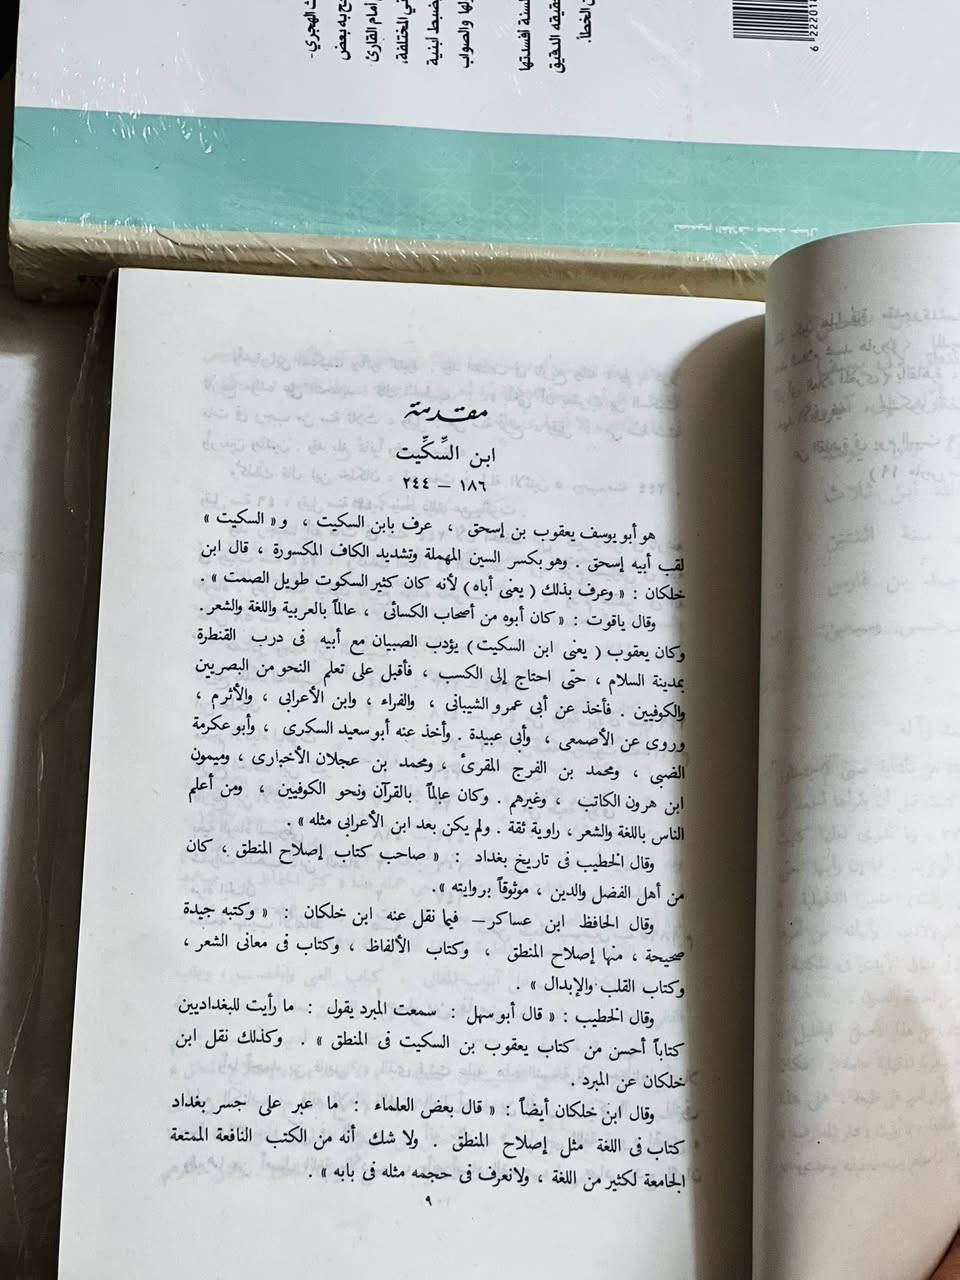 ث الهجري-
ح به بعض
أمام القارئ
ني المختلفة،
ضبط أبنية
ولها والصواب
لسنة أفسدتها
حقيقه الدقيق
ن الخطأ.
تصميم الغلاف: محمد جمال
مقدمة
ابن السِّكِّيت
١٨٦ – ٢٤٤
هو أبو يوسف يعقوب بن إسحق ، عرف بابن السكيت ، و« السكيت »
لقب أبيه إسحق . وهو بكسر السين المهملة وتشديد الكاف المكسورة ، قال ابن
خلكان : « وعرف بذلك ( يعنى أباه ) لأنه كان كثير السكوت طويل الصمت » .
وقال ياقوت : « كان أبوه من أصحاب الكسائى ، عالماً بالعربية واللغة والشعر .
وكان يعقوب ( يعنى ابن السكيت ) يؤدب الصبيان مع أبيه فى درب القنطرة
بمدينة السلام ، حتى احتاج إلى الكسب ، فأقبل على تعلم النحو من البصريين
والكوفيين . فأخذ عن أبى عمرو الشيبانى ، والفراء ، وابن الأعرابى ، والأثرم ،
وروى عن الأصمعى ، وأبى عبيدة . وأخذ عنه أبو سعيد السكرى ، وأبو عكرمة
الضبى ، ومحمد بن الفرج المقرئ ، ومحمد بن عجلان الأخبارى ، وميمون
ابن هرون الكاتب ، وغيرهم . وكان عالماً بالقرآن ونحو الكوفيين ، ومن أعلم
الناس باللغة والشعر ، راوية ثقة . ولم يكن بعد ابن الأعرابى مثله » .
وقال الخطيب فى تاريخ بغداد : « صاحب كتاب إصلاح المنطق ، كان
من أهل الفضل والدين ، موثوقاً بروايته » .
وقال الحافظ ابن عساكر – فيما نقل عنه ابن خلكان : « وكتبه جيدة
صحيحة ، منها إصلاح المنطق ، وكتاب الألفاظ ، وكتاب فى معانى الشعر ،
وكتاب القلب والإبدال » .
وقال الخطيب : « قال أبو سهل : سمعت المبرد يقول : ما رأيت للبغداديين
كتاباً أحسن من كتاب يعقوب بن السكيت فى المنطق » . وكذلك نقل ابن
خلكان عن المبرد .
وقال ابن خلكان أيضاً : « قال بعض العلماء : ما عبر على جسر بغداد
كتاب فى اللغة مثل إصلاح المنطق . ولا شك أنه من الكتب النافعة الممتعة
الجامعة لكثير من اللغة ، ولا نعرف فى حجمه مثله فى بابه » .
٩